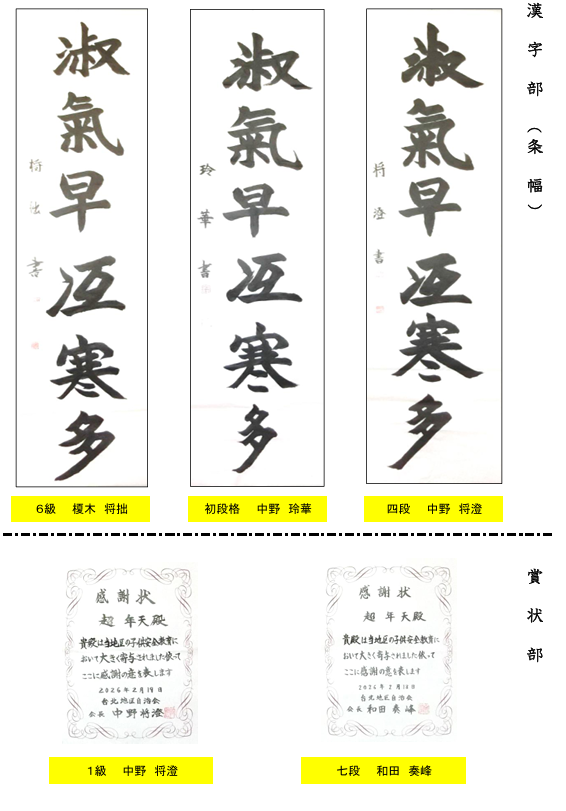 漢字部（条幅）
淑氣早冱寒多
将澄書
四段　中野　将澄
淑氣早冱寒多
玲華書
初段格　中野　玲華
淑氣早冱寒多
将拙書
6級　榎木　将拙
賞状部
感謝状
超 年天殿
貴殿は当地区の子供安全教育に
おいて大きく寄与されました依って
ここに感謝の意を表します
2026年2月18日
台北地区自治会
会長 和田奏峰
七段　和田　奏峰
感謝状
超 年天殿
貴殿は当地区の子供安全教育に
おいて大きく寄与されました依って
ここに感謝の意を表します
2026年2月19日
台北地区自治会
会長 中野将澄
1級　中野　将澄